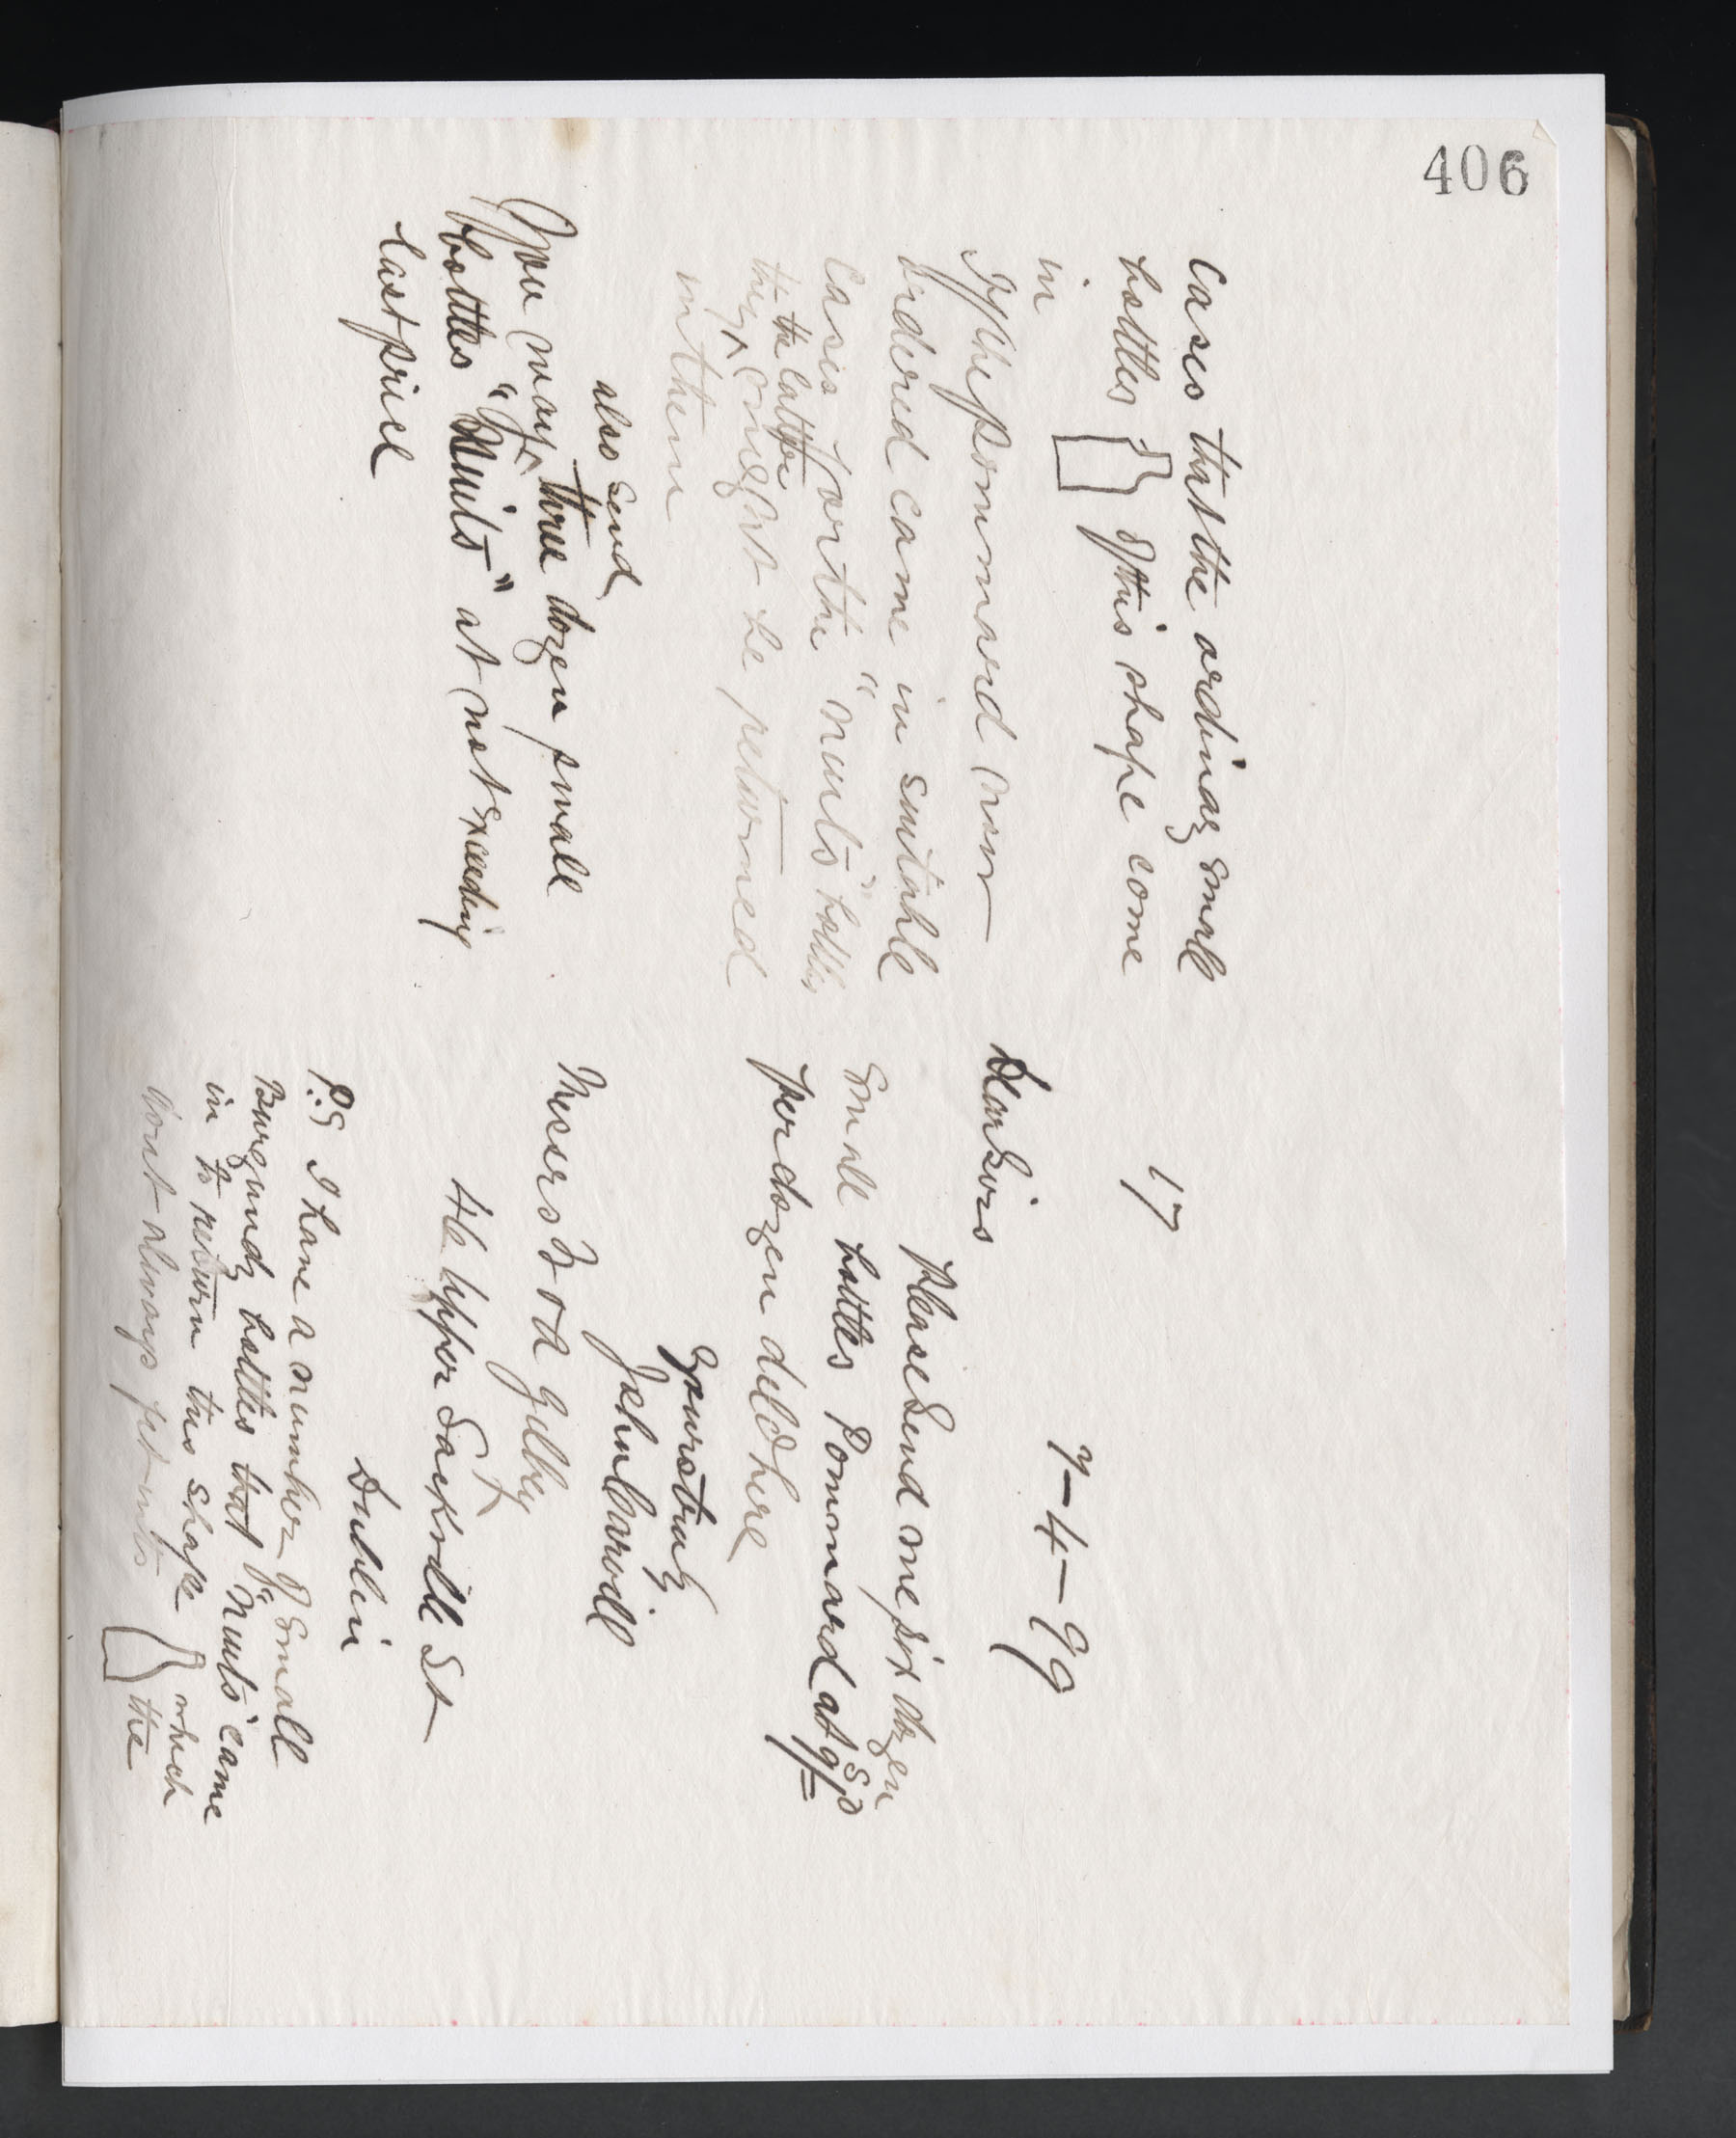 406
17
7-4-99
Dear Sirs
Please Send me six dozen
small bottles Pommard at 9s/=d
per dozen deld here
Yours truly
John Carvill
Messrs W & A Gilbey
46 Upper Sackville St
Dublin
P.S I have a number of small
Burgundy bottles that "Nuits" came
in to return this shape which
wont always fit into the
Cases that the ordinary small
bottles of this shape come
in
If the pommard now
ordered came in suitable
cases for the "nuits" bottles
they the latter might be returned
in them
You may also send three dozen small
bottles "Nuits" at not exceeding
last price